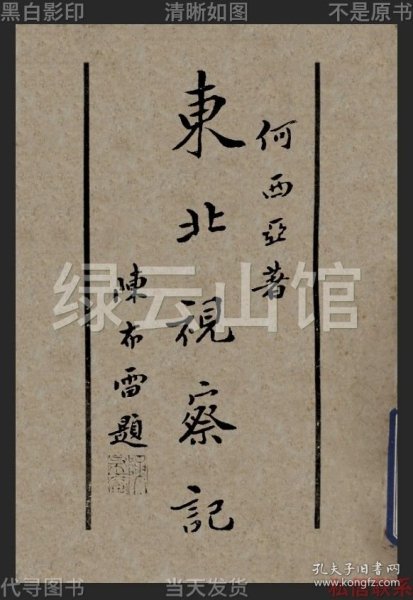 黑白影印
清晰如图
不是原书
何西亞著
東北視察記
陳布雷題
绿云山馆
孔夫子旧书网
代寻图书
当天发货
私信联系